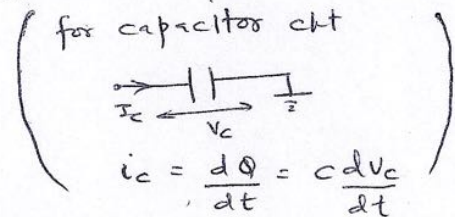 for capacitor ckt
Ic
Vc
ic = dQ/dt = c dvc/dt